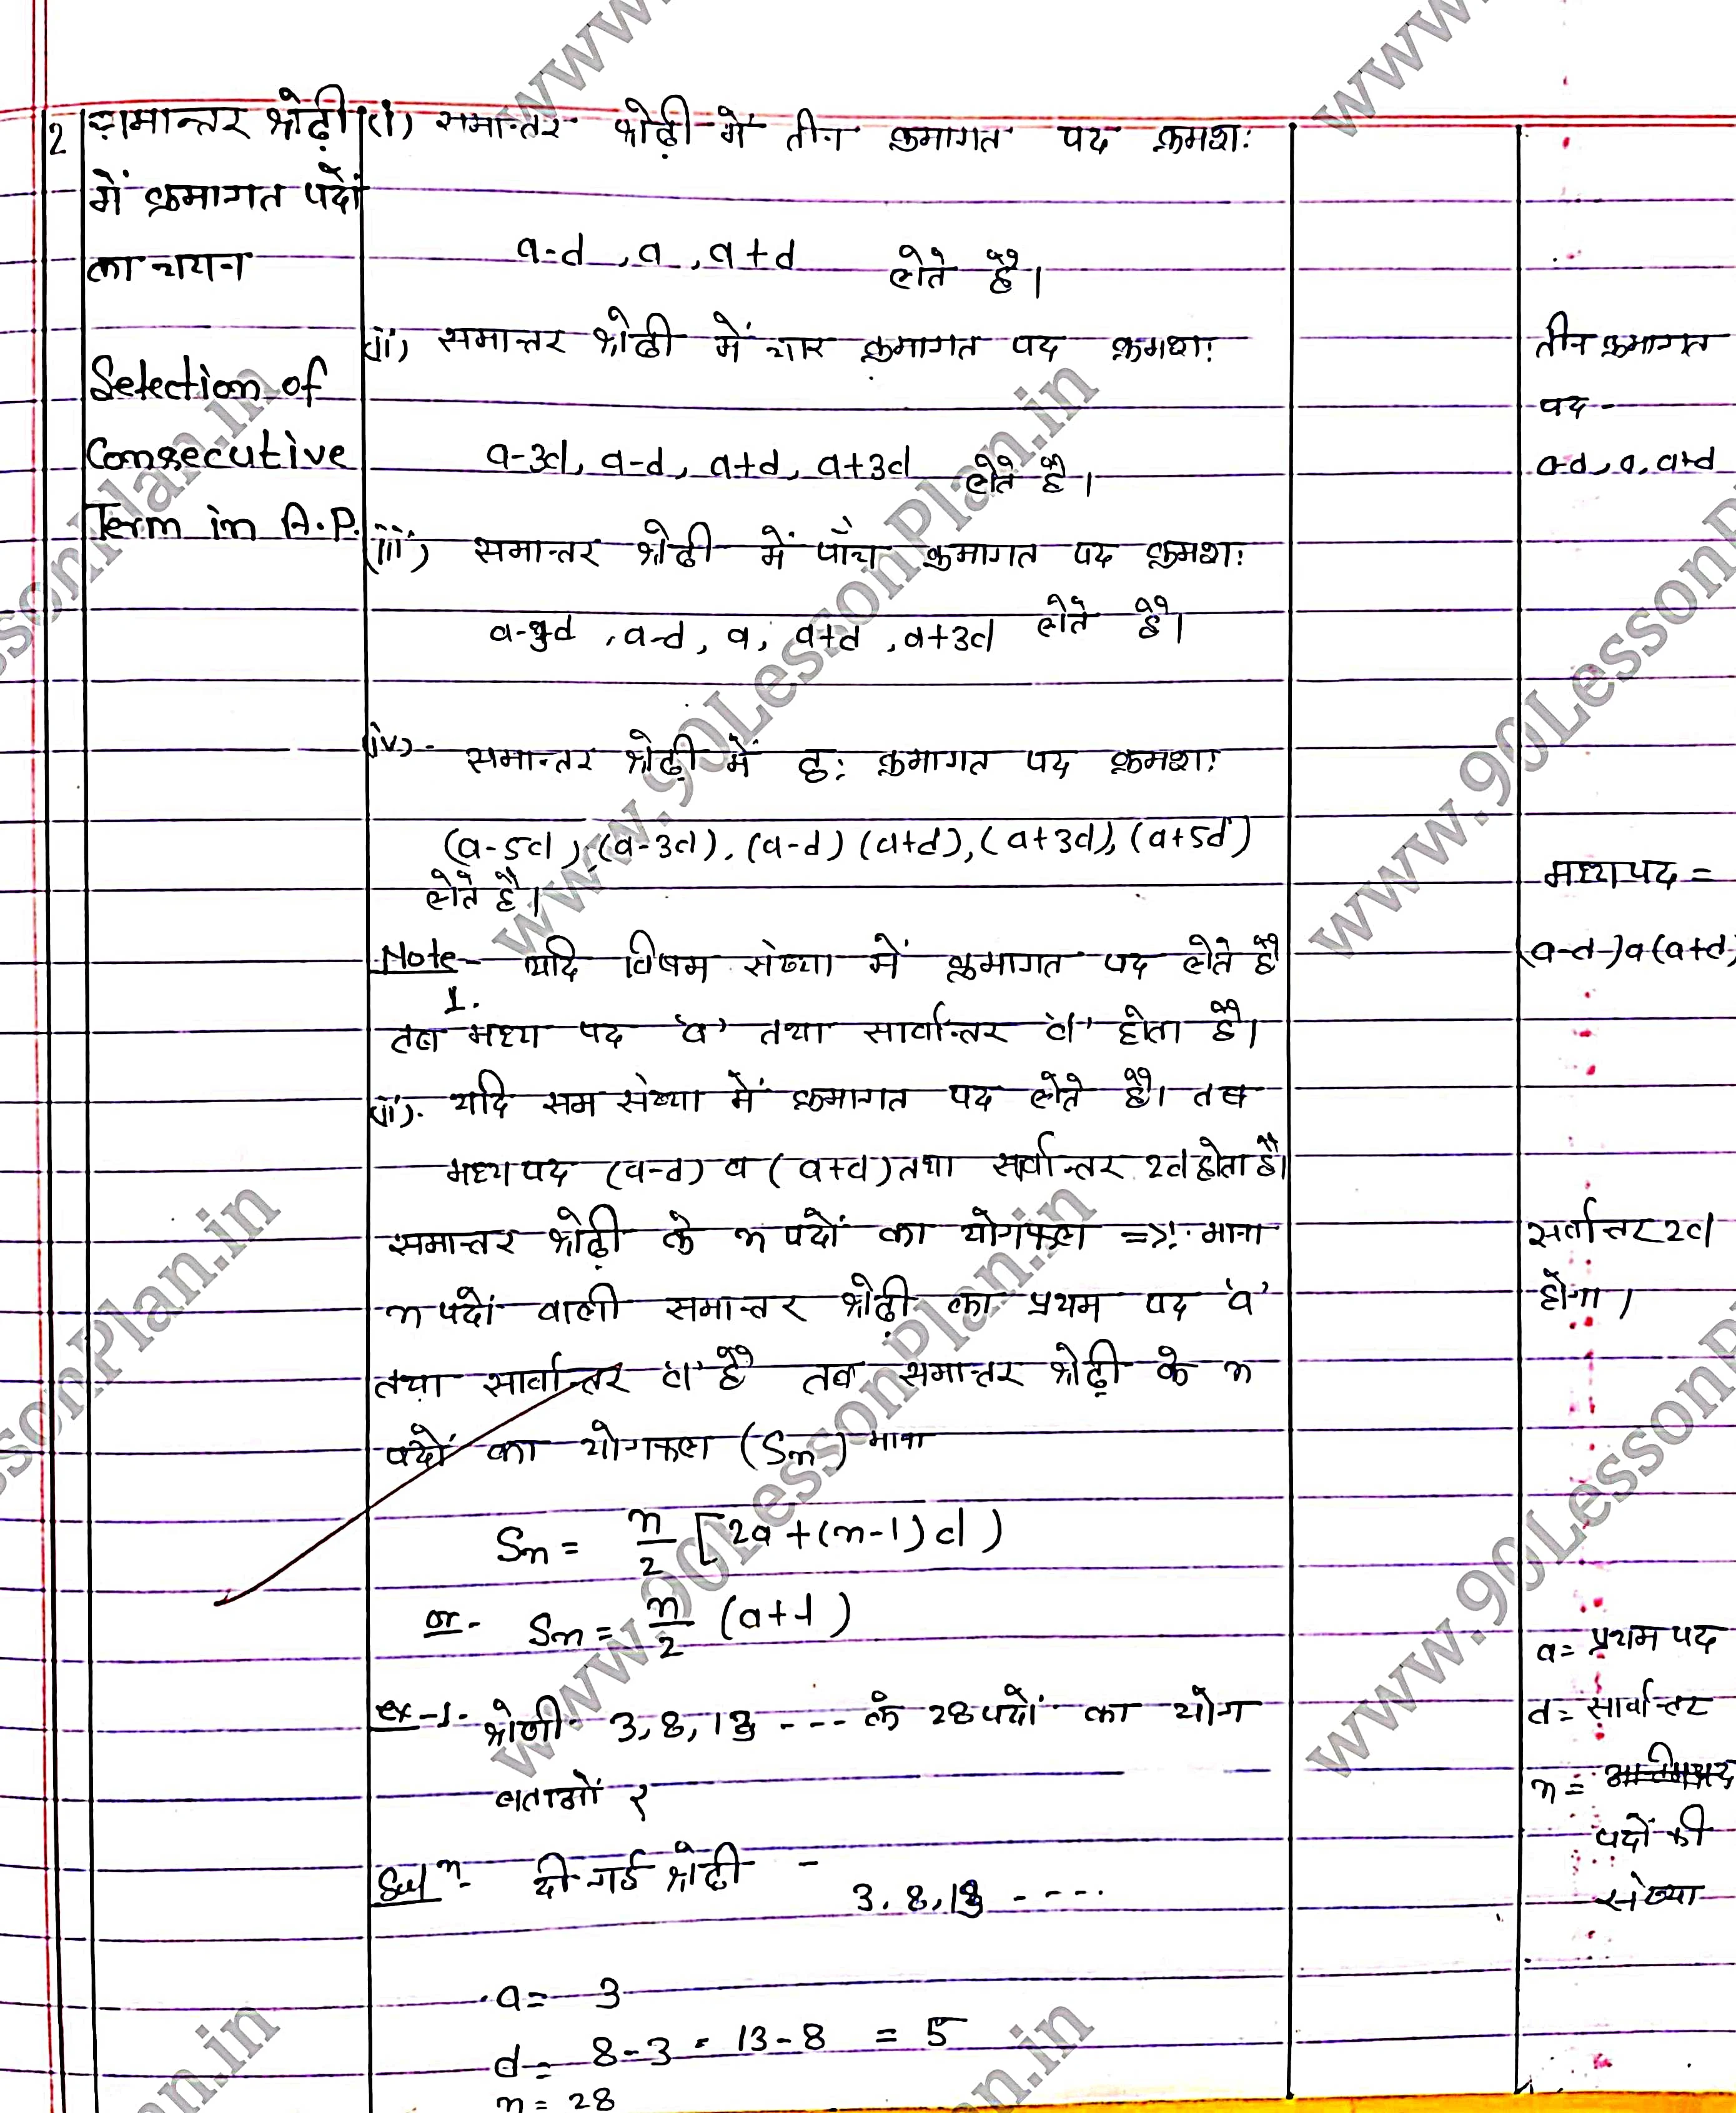 2
समान्तर श्रेढ़ी
में क्रमागत पदों
का चयन
Selection of
Consecutive
Term in A.P.
(i) समान्तर श्रेढ़ी में तीन क्रमागत पद क्रमश:
a-d, a, a+d लेते हैं।
(ii) समान्तर श्रेढ़ी में चार क्रमागत पद क्रमश:
a-3d, a-d, a+d, a+3d लेते हैं।
(iii) समान्तर श्रेढ़ी में पाँच क्रमागत पद क्रमश:
a-3d, a-d, a, a+d, a+3d लेते हैं।
(iv) - समान्तर श्रेढ़ी में छ: क्रमागत पद क्रमश:
(a-5d), (a-3d), (a-d) (a+d), (a+3d), (a+5d)
लेते हैं।
Note- यदि विषम संख्या में क्रमागत पद लेते हैं
1.
तब मध्य पद 'a' तथा सार्वान्तर 'd' होता है।
(ii). यदि सम संख्या में क्रमागत पद लेते हैं। तब
मध्य पद (a-d) व (a+d) तथा सर्वान्तर 2d होता है।
समान्तर श्रेढ़ी के n पदों का योगफल => :- माना
n पदों वाली समान्तर श्रेढ़ी का प्रथम पद 'a'
तथा सार्वान्तर 'd' है तब समान्तर श्रेढ़ी के n
पदों का योगफल (Sn) माना
Sn = n/2 [2a+(n-1)d)
or- Sn = n/2 (a+l)
ex-1. श्रेणी 3, 8, 13 --- के 28 पदों का योग
बताओं ?
Sol^n- दी गई श्रेढ़ी -
3, 8, 13 ----
a= 3
d= 8-3 = 13-8 = 5
n= 28
तीन क्रमागत
पद -
a-d, a, a+d
मध्य पद =
(a-d) a (a+d)
सर्वान्तर 2d
होगा।
a= प्रथम पद
d= सार्वान्तर
n=
पदों की
संख्या
www.90LessonPlan.in